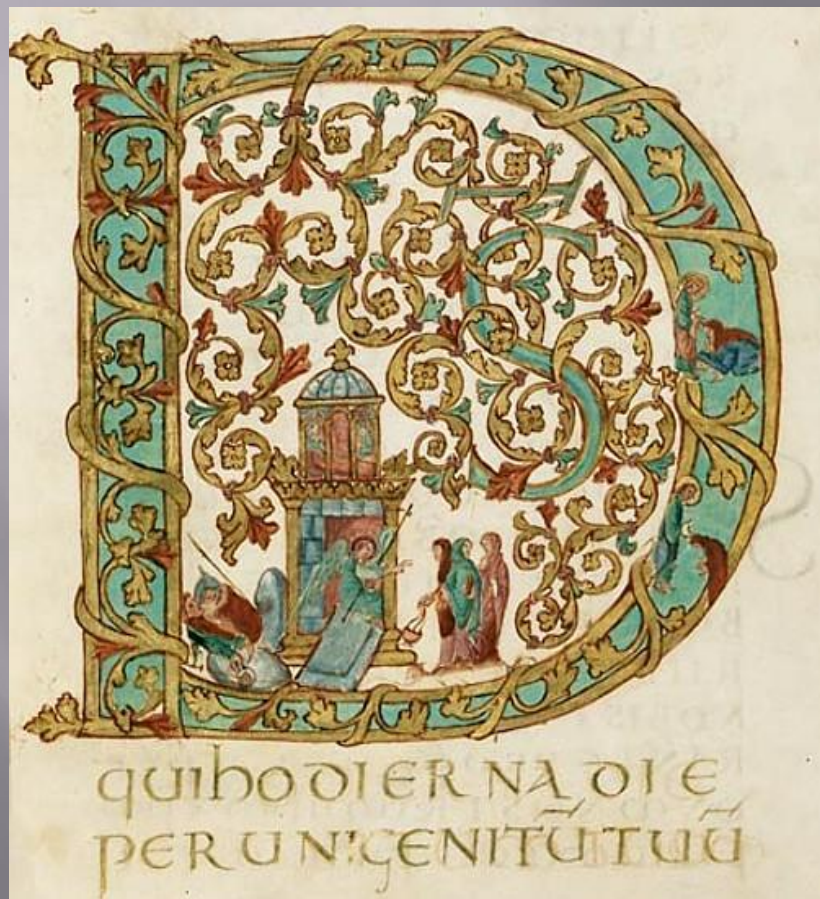 DS̄
quihODIERNA DIE
PERUNIGENITŪ TUŪ